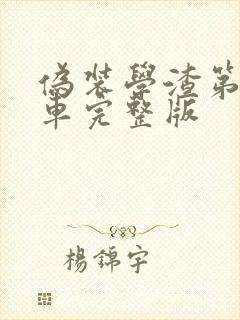 偽裝學渣第
車完整版
楊錦宇